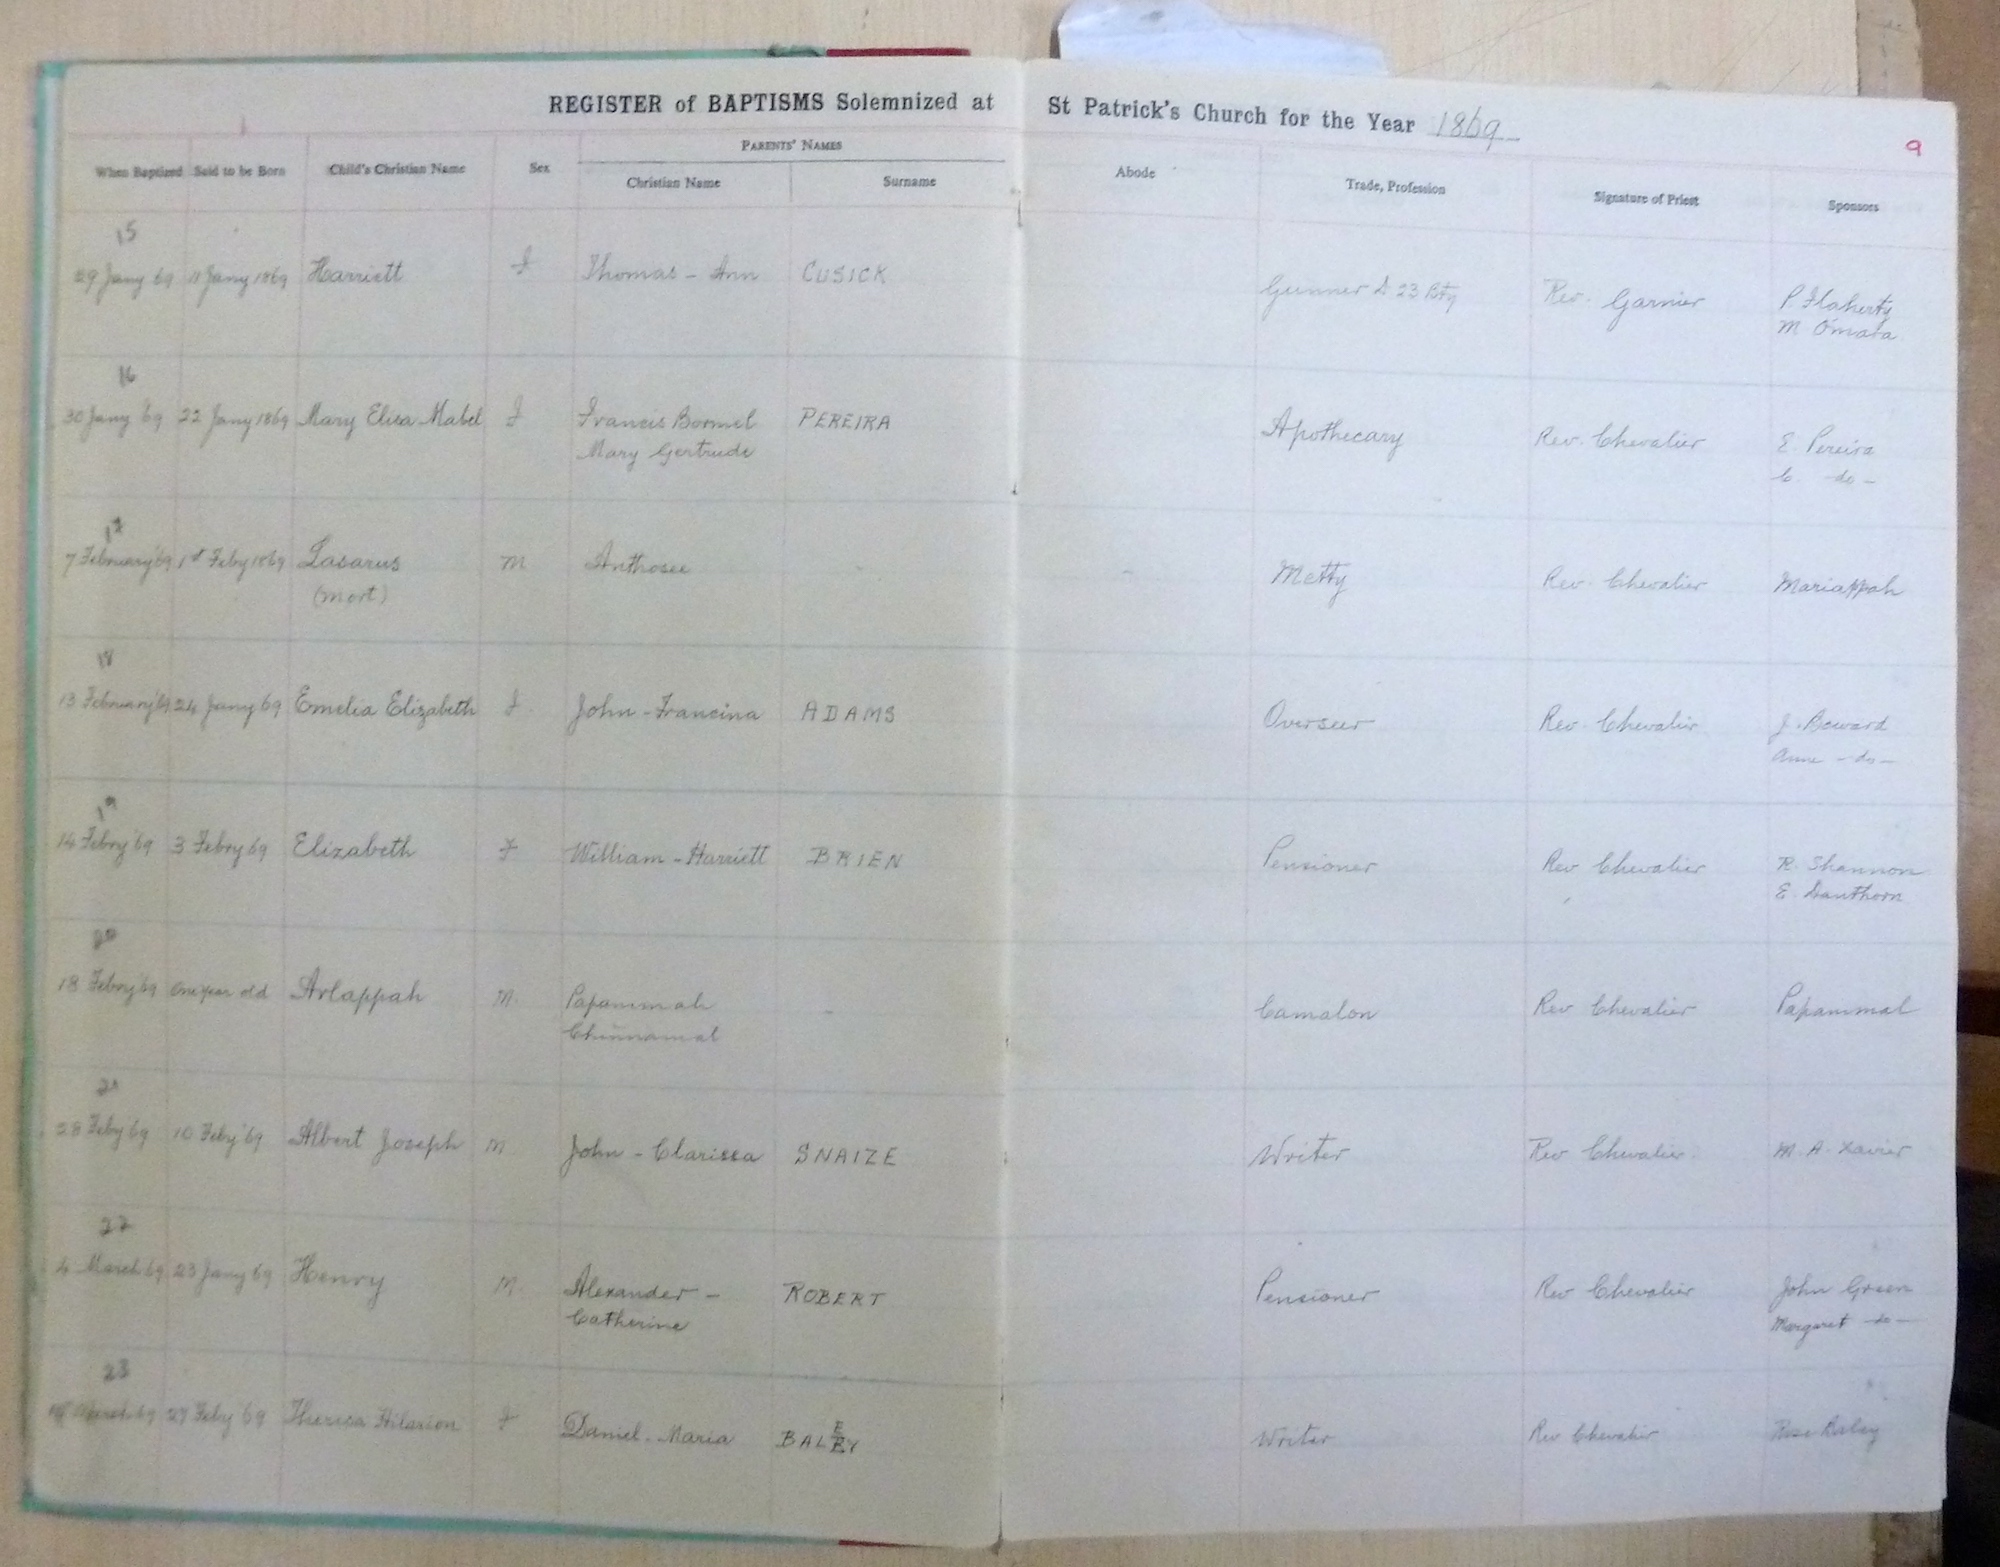 REGISTER of BAPTISMS Solemnized at St Patrick's Church for the Year 1869
9
PARENTS' NAMES
When Baptized Said to be Born Child's Christian Name Sex Christian Name Surname Abode Trade, Profession Signature of Priest Sponsors
15
29 Jany 69 11 Jany 1869 Harriett F Thomas - Ann CUSICK Gunner D 23 Bty Rev. Garnier P Flaherty
M O'mara
16
30 Jany 69 22 Jany 1869 Mary Elisa Mabel F Francis Bormel PEREIRA Apothecary Rev. Chevalier E. Pereira
Mary Gertrude C -do-
17
7 February 69 1st Feby 1869 Lasarus M Anthosee Metty Rev. Chevalier Mariappah
(mort)
18
13 February 69 24 Jany 69 Emelia Elizabeth F John - Francina ADAMS Overseer Rev. Chevalier J. Boward
Anne -do-
19
14 Febry 69 3 Febry 69 Elizabeth F William - Harriett BRIEN Pensioner Rev Chevalier R. Shannon
E. Danthorn
20
18 Febry 69 One year old Arlappah M. Papammah Camalon Rev Chevalier Papammal
Chinnamal
21
28 Feby 69 10 Feby '69 Albert Joseph M John - Clarissa SNAIZE Writer Rev Chevalier. M. A. Xavier
22
4 March 69 23 Jany 69 Henry M. Alexander - ROBERT Pensioner Rev Chevalier John Green
Catherine Margaret -do-
23
March 69 27 Feby 69 Theresa Hilarion F Daniel - Maria BALEY Writer Rev Chevalier Rose Baley